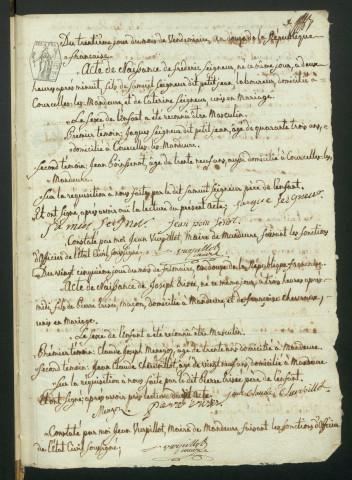 Du trentième jour du mois de Vendemiaire, an douze de la République
française.
Acte de Naissance de fréderic Seigneur, né ce même jour, à deux
heures après minuit, fils de Samuel Seigneur dit petit jean, laboureur, domicilié à
Courcelles-les-Mandeure, et de Caterine Seigneur, unis en Mariage.
Le Sexe de l'enfant a été reconnu être Masculin
Prémier témoin: Jacques Seigneur dit petit jean, age de quarante trois ans,
domicilié à Courcelles-les Mandeure.
Second témoin: Jean Boissenot, âgé de trente neuf ans, aussi domicilié à Courcelles-les-
Mandeure.
Sur la requisition à nous faite par le dit Samuel Seigneur, père de l'enfant.
Et ont signé, après avoir oui la lecture du présent Acte;
Constaté par moi Jean Verpillot, Maire de Mandeure, faisant les fonctions
d'officier de l'Etat Civil soussigné;
Du vingt cinquième jour du mois de frimaire, an douze de la République française
Acte de Naissance de Joseph né ce même jour, à trois heures après-
midi, fils de Pierre Maçon, domicilié à Mandeure et de françoise
unis en Mariage.
Le Sexe de l'enfant a été reconnu être Masculin.
Prémier témoin: Claude Joseph âgé de trente ans, domicilié à Mandeure
Second témoin: Jean Claude âgé de vingt neuf ans, domicilié à Mandeure
Sur la requisition à nous faite par le dit Pierre père de l'enfant.
Et ont signé, après avoir pris lecture du présent Acte;
Constaté par moi Jean Verpillot, Maire de Mandeure faisant les fonctions d'officier
de l'Etat Civil soussigné;
verpillot
maire